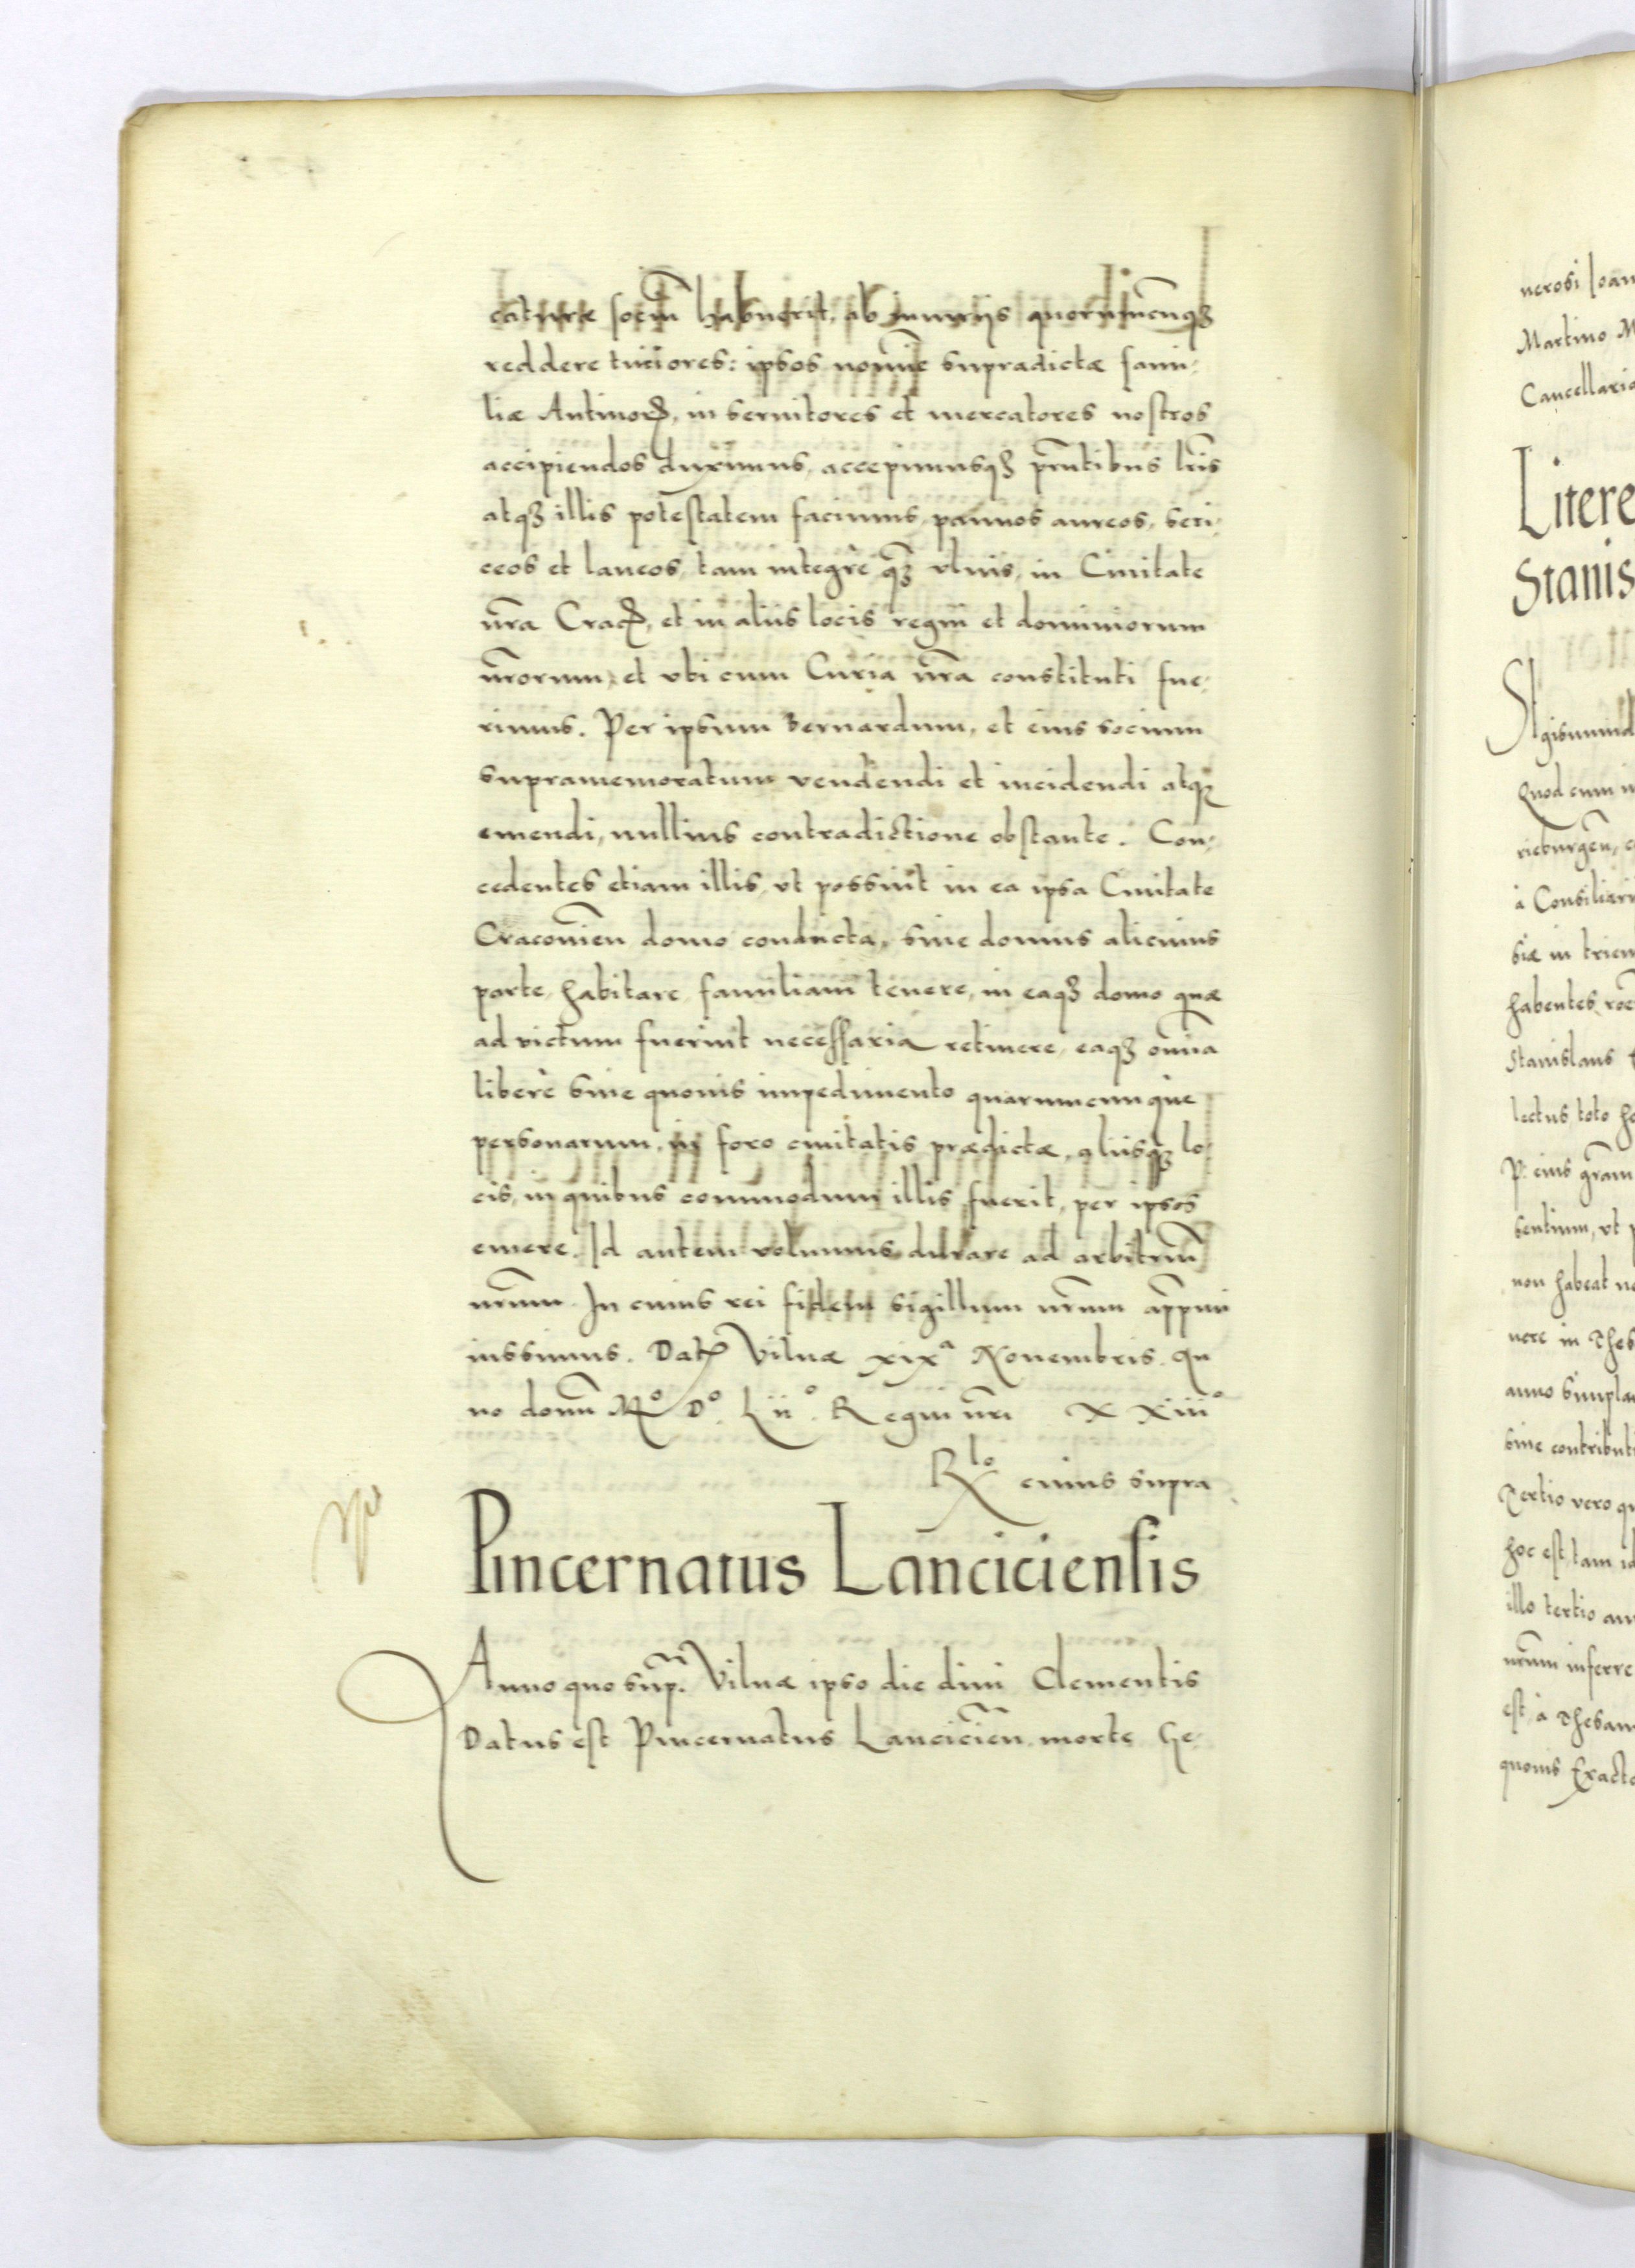 caturæ sociũ habuerit, ab iniuriis quorũcunq3
reddere tutiores: ipsos nomine supradictæ fami-
liæ Antinorꝝ, in seruitores et mercatores nostros
accipiendos duximus, accepimusq3 pñtibus lr̃is
atq3 illis potestatem facimus, pannos aureos, seri-
ceos et laneos, tam integrè q̃3 vlnis, in Ciuitate
nr̃a Cracꝝ, et in aliis locis regni et dominiorum
nr̃orum, et vbi cum Curia nr̃a constituti fue-
rimus. Per ipsum Bernardum, et eius socium
supramemoratum vendendi et incidendi atq3
emendi, nullius contradictione obstante. Con-
cedentes etiam illis, vt possint in ea ipsa Ciuitate
Cracouień domo conducta, siue domus alicuius
parte, habitare, familiam tenere, in eaq3 domo quæ
ad victum fuerint necessaria retinere, eaq3 omĩa
liberè sine quouis impedimento quarumcunque
personarum, in foro ciuitatis prædictæ, aliisq3 lo-
cis, in quibus commodum illis fuerit, per ipsos
emere. Id autem volumus durare ad arbitriũ
nr̃um. In cuius rei fidem sigillum nr̃um app̃ni
iussimus. Datꝝ Vilnæ xixᵃ Nouembris. An
no domĩ Mº Dº Liiº. Regni nr̃i XXiiiº
Rˡº cuius supra
Pincernatus Lanciciensis
Anno quo sup.ᵃ Vilnæ ipso die diui Clementis
Datus est Pincernatus Lancicień morte Ge-
nerosi Ioan
Martino M
Cancellaria
Litere
Stanis
Sigismund
Quod cum in
rieburgeñ, e
à Consiliari
siæ in trien
habentes, roe
Stanislaus
lectus toto
P. eius grãm
sentium, vt p
non habeat ne
uere in Thes
anno simplae
siue contributi
Tertio vero qu
hoc est, tam id
illo tertio an
nr̃um inferre
est, à Thesau
quouis Exacto